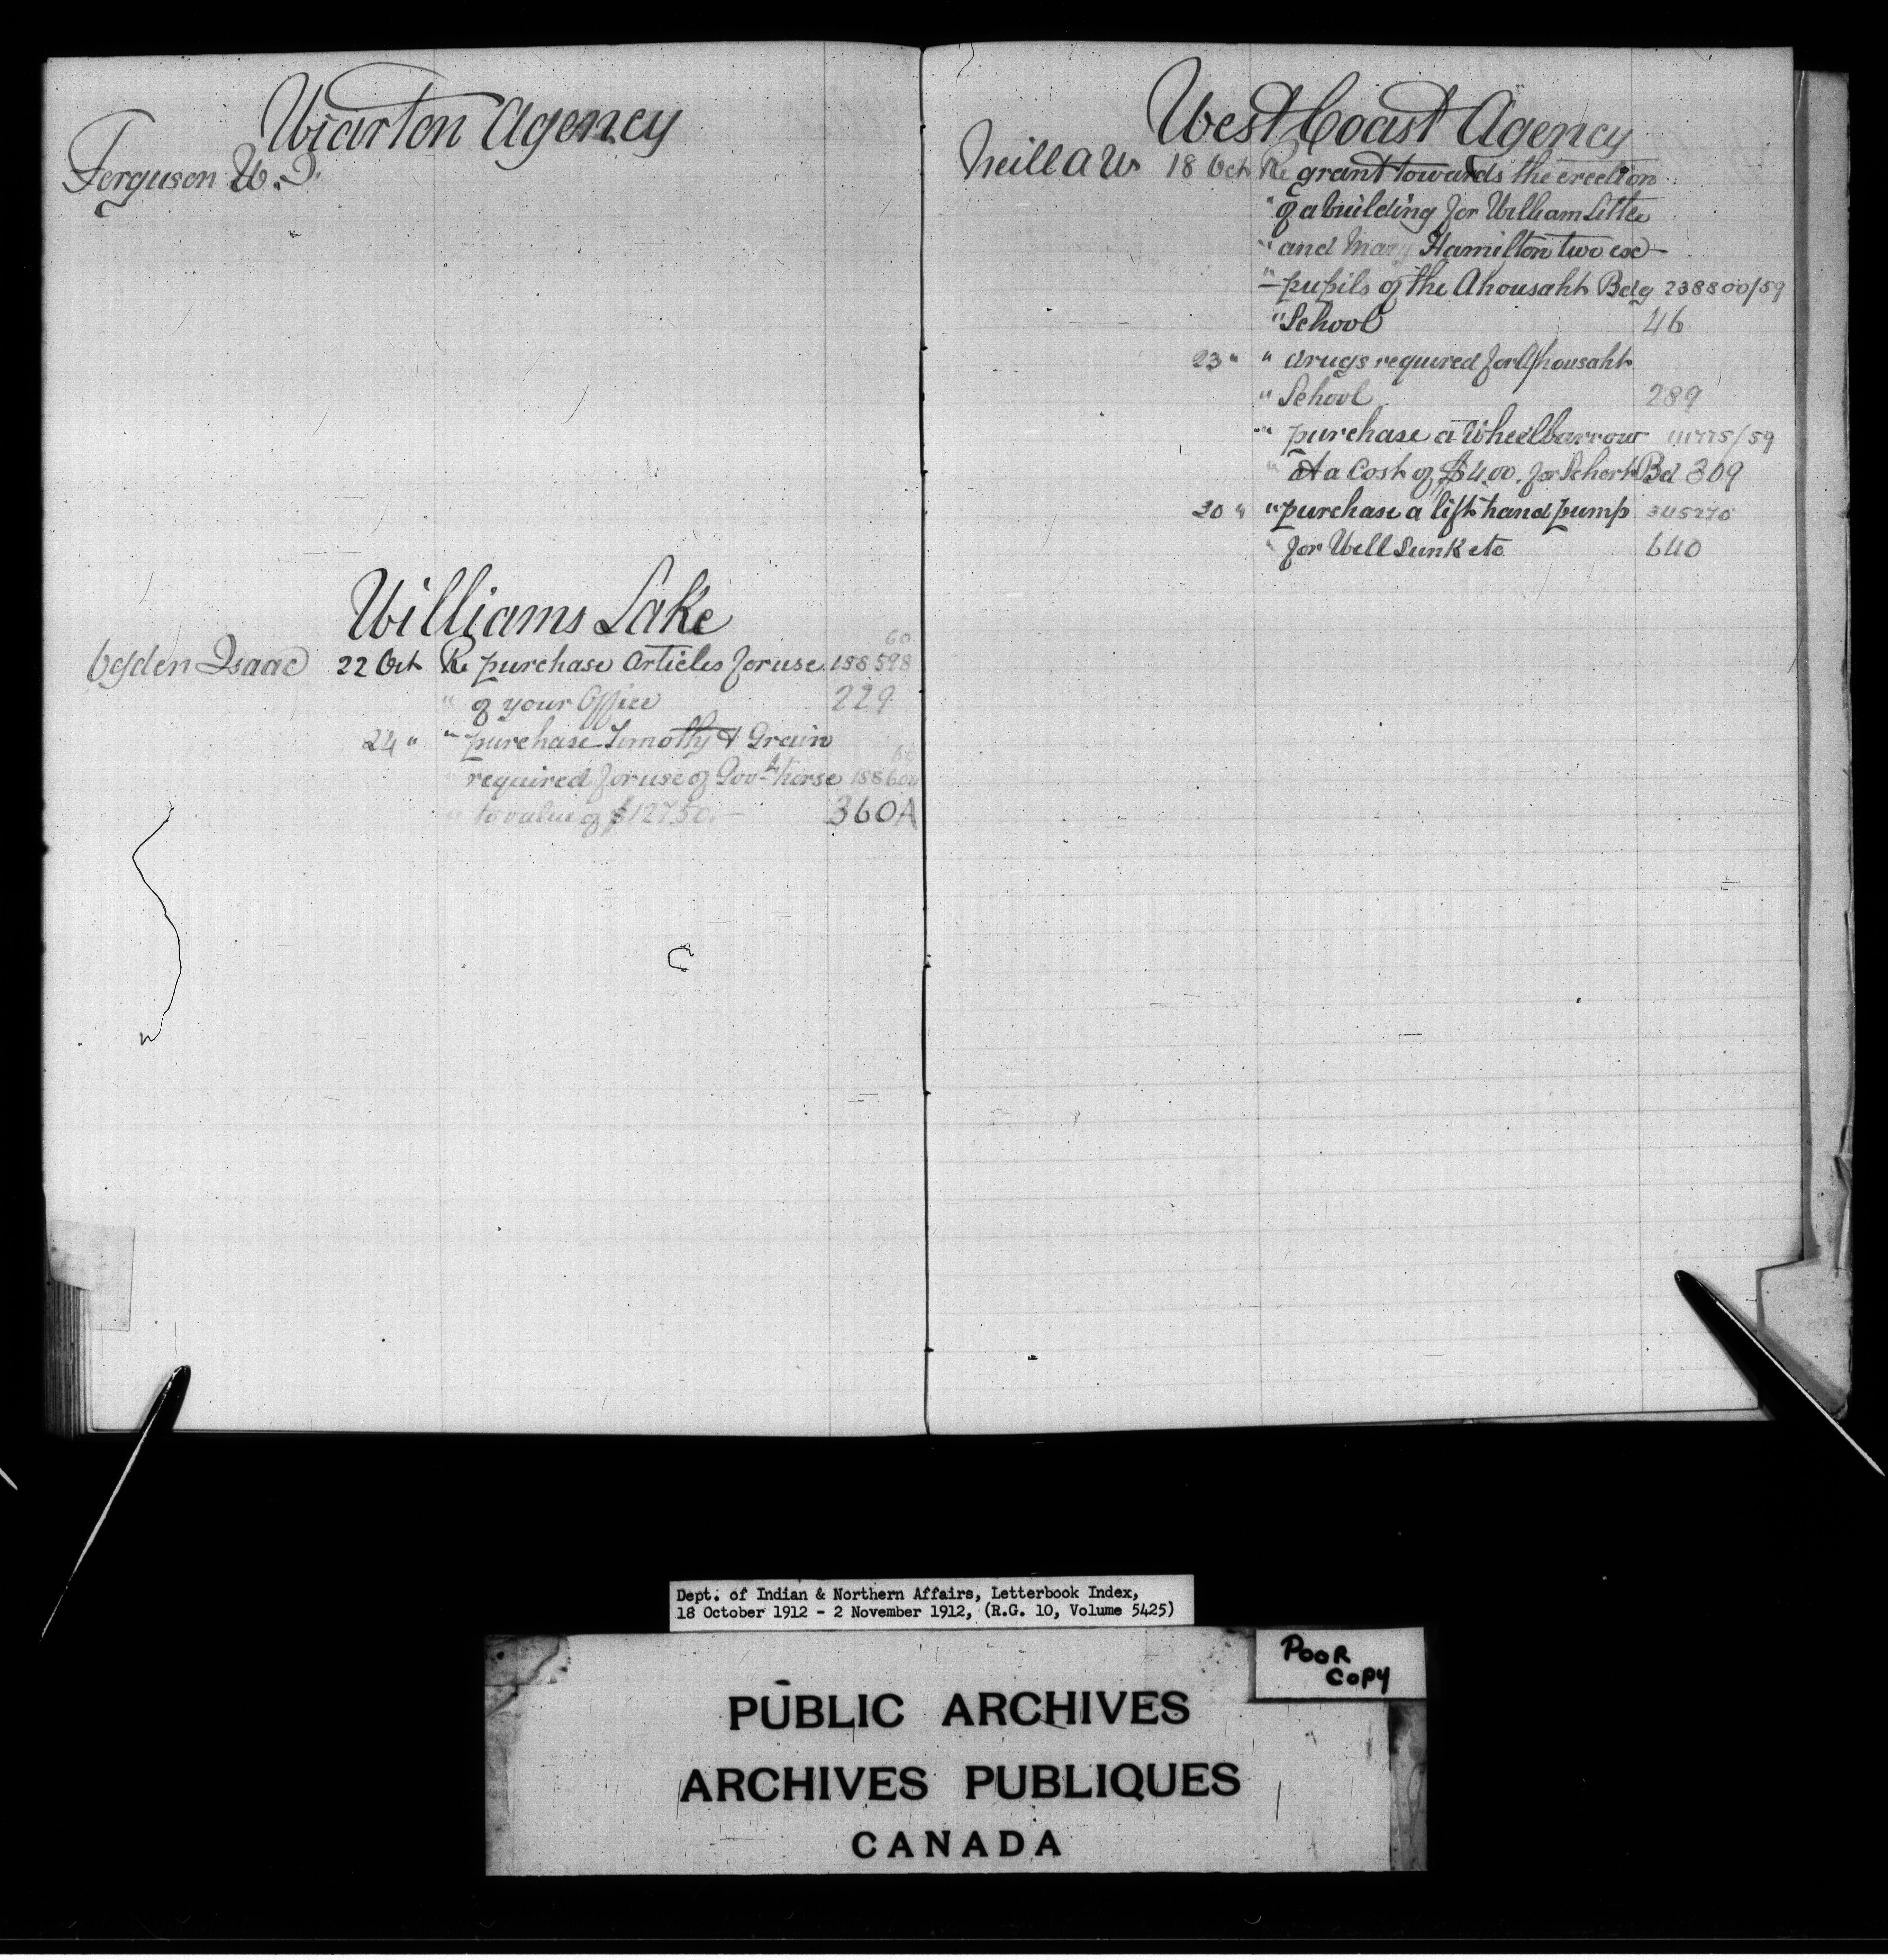 Wiarton Agency
Ferguson W. D.
Williams Lake
Ogden Isaac 22 Oct Re purchase Articles for use 158598
60
" of your Office 229
24 " " purchase Timothy & Grain
required for use of Gov-t horse 158604
60
" to value of $127.50. — 360A
West Coast Agency
Neill A W 18 Oct Re grant towards the erection
" of a building for William Little
" and Mary Hamilton two ex-
" pupils of the Ahousaht Bdg 238800/59
" School 46
23 " " drugs required for Ahousaht
" School 289
" purchase a Wheelbarrow /59
" at a Cost of $4.00. for Bd 309
30 " " purchase a lift hand pump 345270
" for Well Sunk etc 640
Dept. of Indian & Northern Affairs, Letterbook Index,
18 October 1912 - 2 November 1912, (R.G. 10, Volume 5425)
POOR
COPY
PUBLIC ARCHIVES
ARCHIVES PUBLIQUES
CANADA